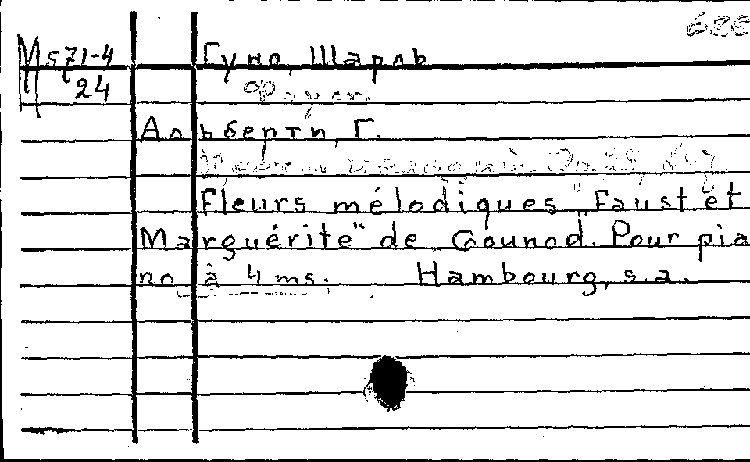 М 571-4
24
Гуно, Шарль
Фауст.
Альберти, Г.
Fleurs mélodiques "Faust et
Marguérite" de Gounod. Pour pia
no à 4 ms. Hambourg, s.a.